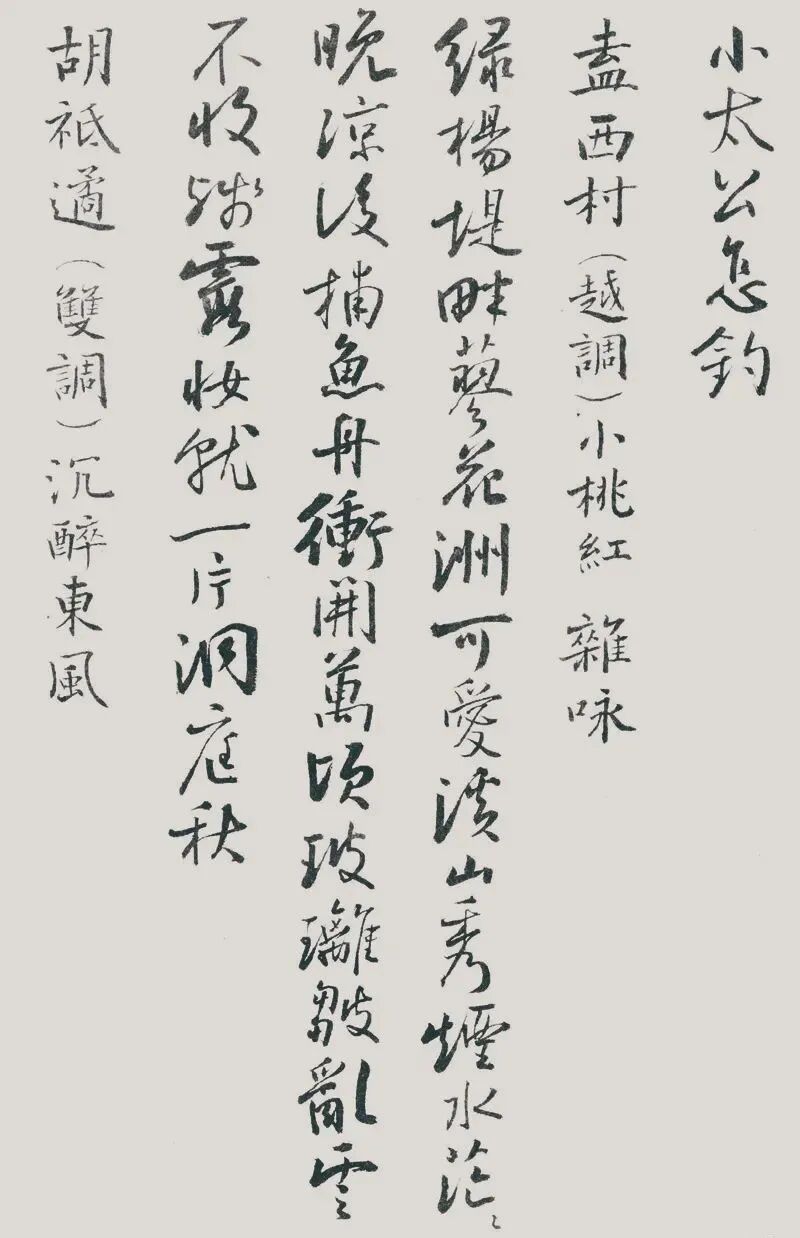 小太公怎釣
盍西村（越調）小桃紅 雜咏
緑楊堤畔蓼花洲可愛溪山秀煙水茫〻
晚涼後捕魚舟衝開萬頃玻璃皺亂雲
不收殘霞妝就一片洞庭秋
胡祗遹（雙調）沉醉東風